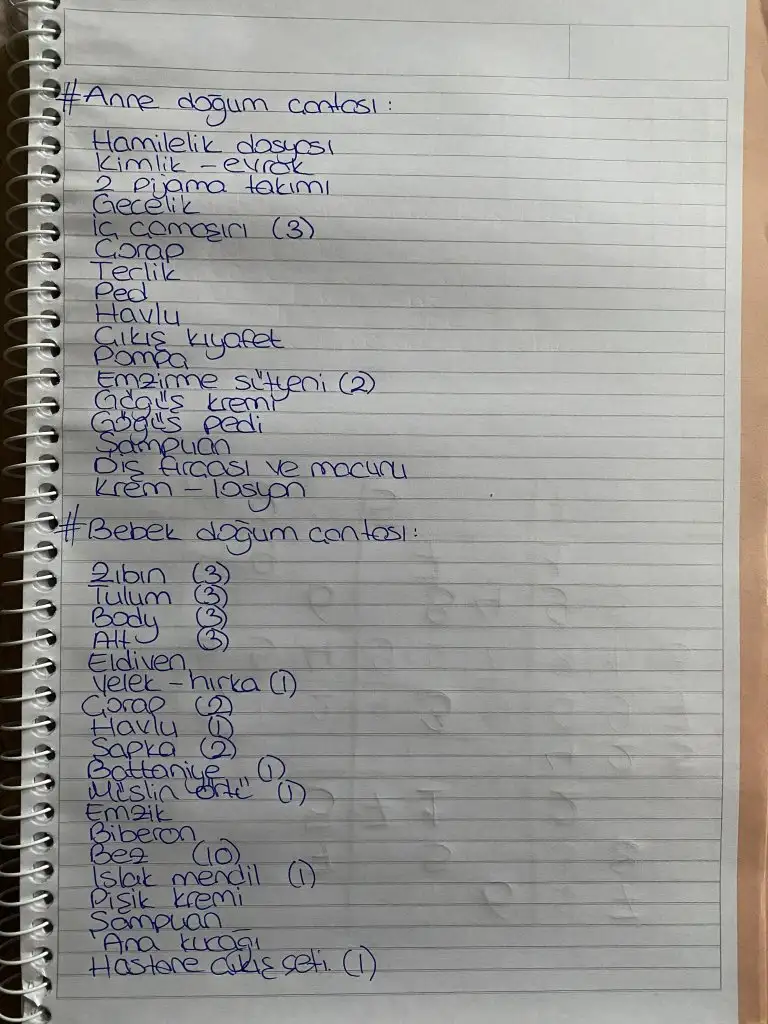 #Anne doğum çantası:
Hamilelik dosyası
Kimlik - evrak
2 pijama takımı
Gecelik
İç çamaşırı (3)
Çorap
Terlik
Ped
Havlu
Çıkış kıyafet
Pompa
Emzirme sütyeni (2)
Göğüs kremi
Göğüs pedi
Şampuan
Diş fırçası ve macunu
Krem - losyon
#Bebek doğum çantası:
Zıbın (3)
Tulum (3)
Body (3)
Alt (3)
Eldiven
Yelek - hırka (1)
Çorap (2)
Havlu (1)
Şapka (2)
Battaniye (1)
Müslin örtü (1)
Emzik
Biberon
Bez (10)
Islak mendil (1)
Pişik kremi
Şampuan
Ana kucağı
Hastane çıkış seti (1)